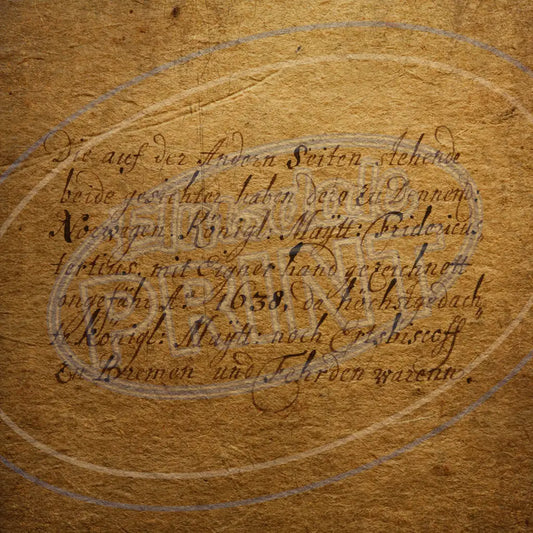 Die auf der Andern Seiten stehende
beide gesichter haben dero zu Dennem:
Norwagen: Königl: Maÿtt: Fridericus
tertius, mit Eigner hand gezeichnett
ongefähr Aº 1638, da höchstgedach
te königl: Maÿtt: noch Ertsbiscoff
zu Bremen und Fehrden warenn.